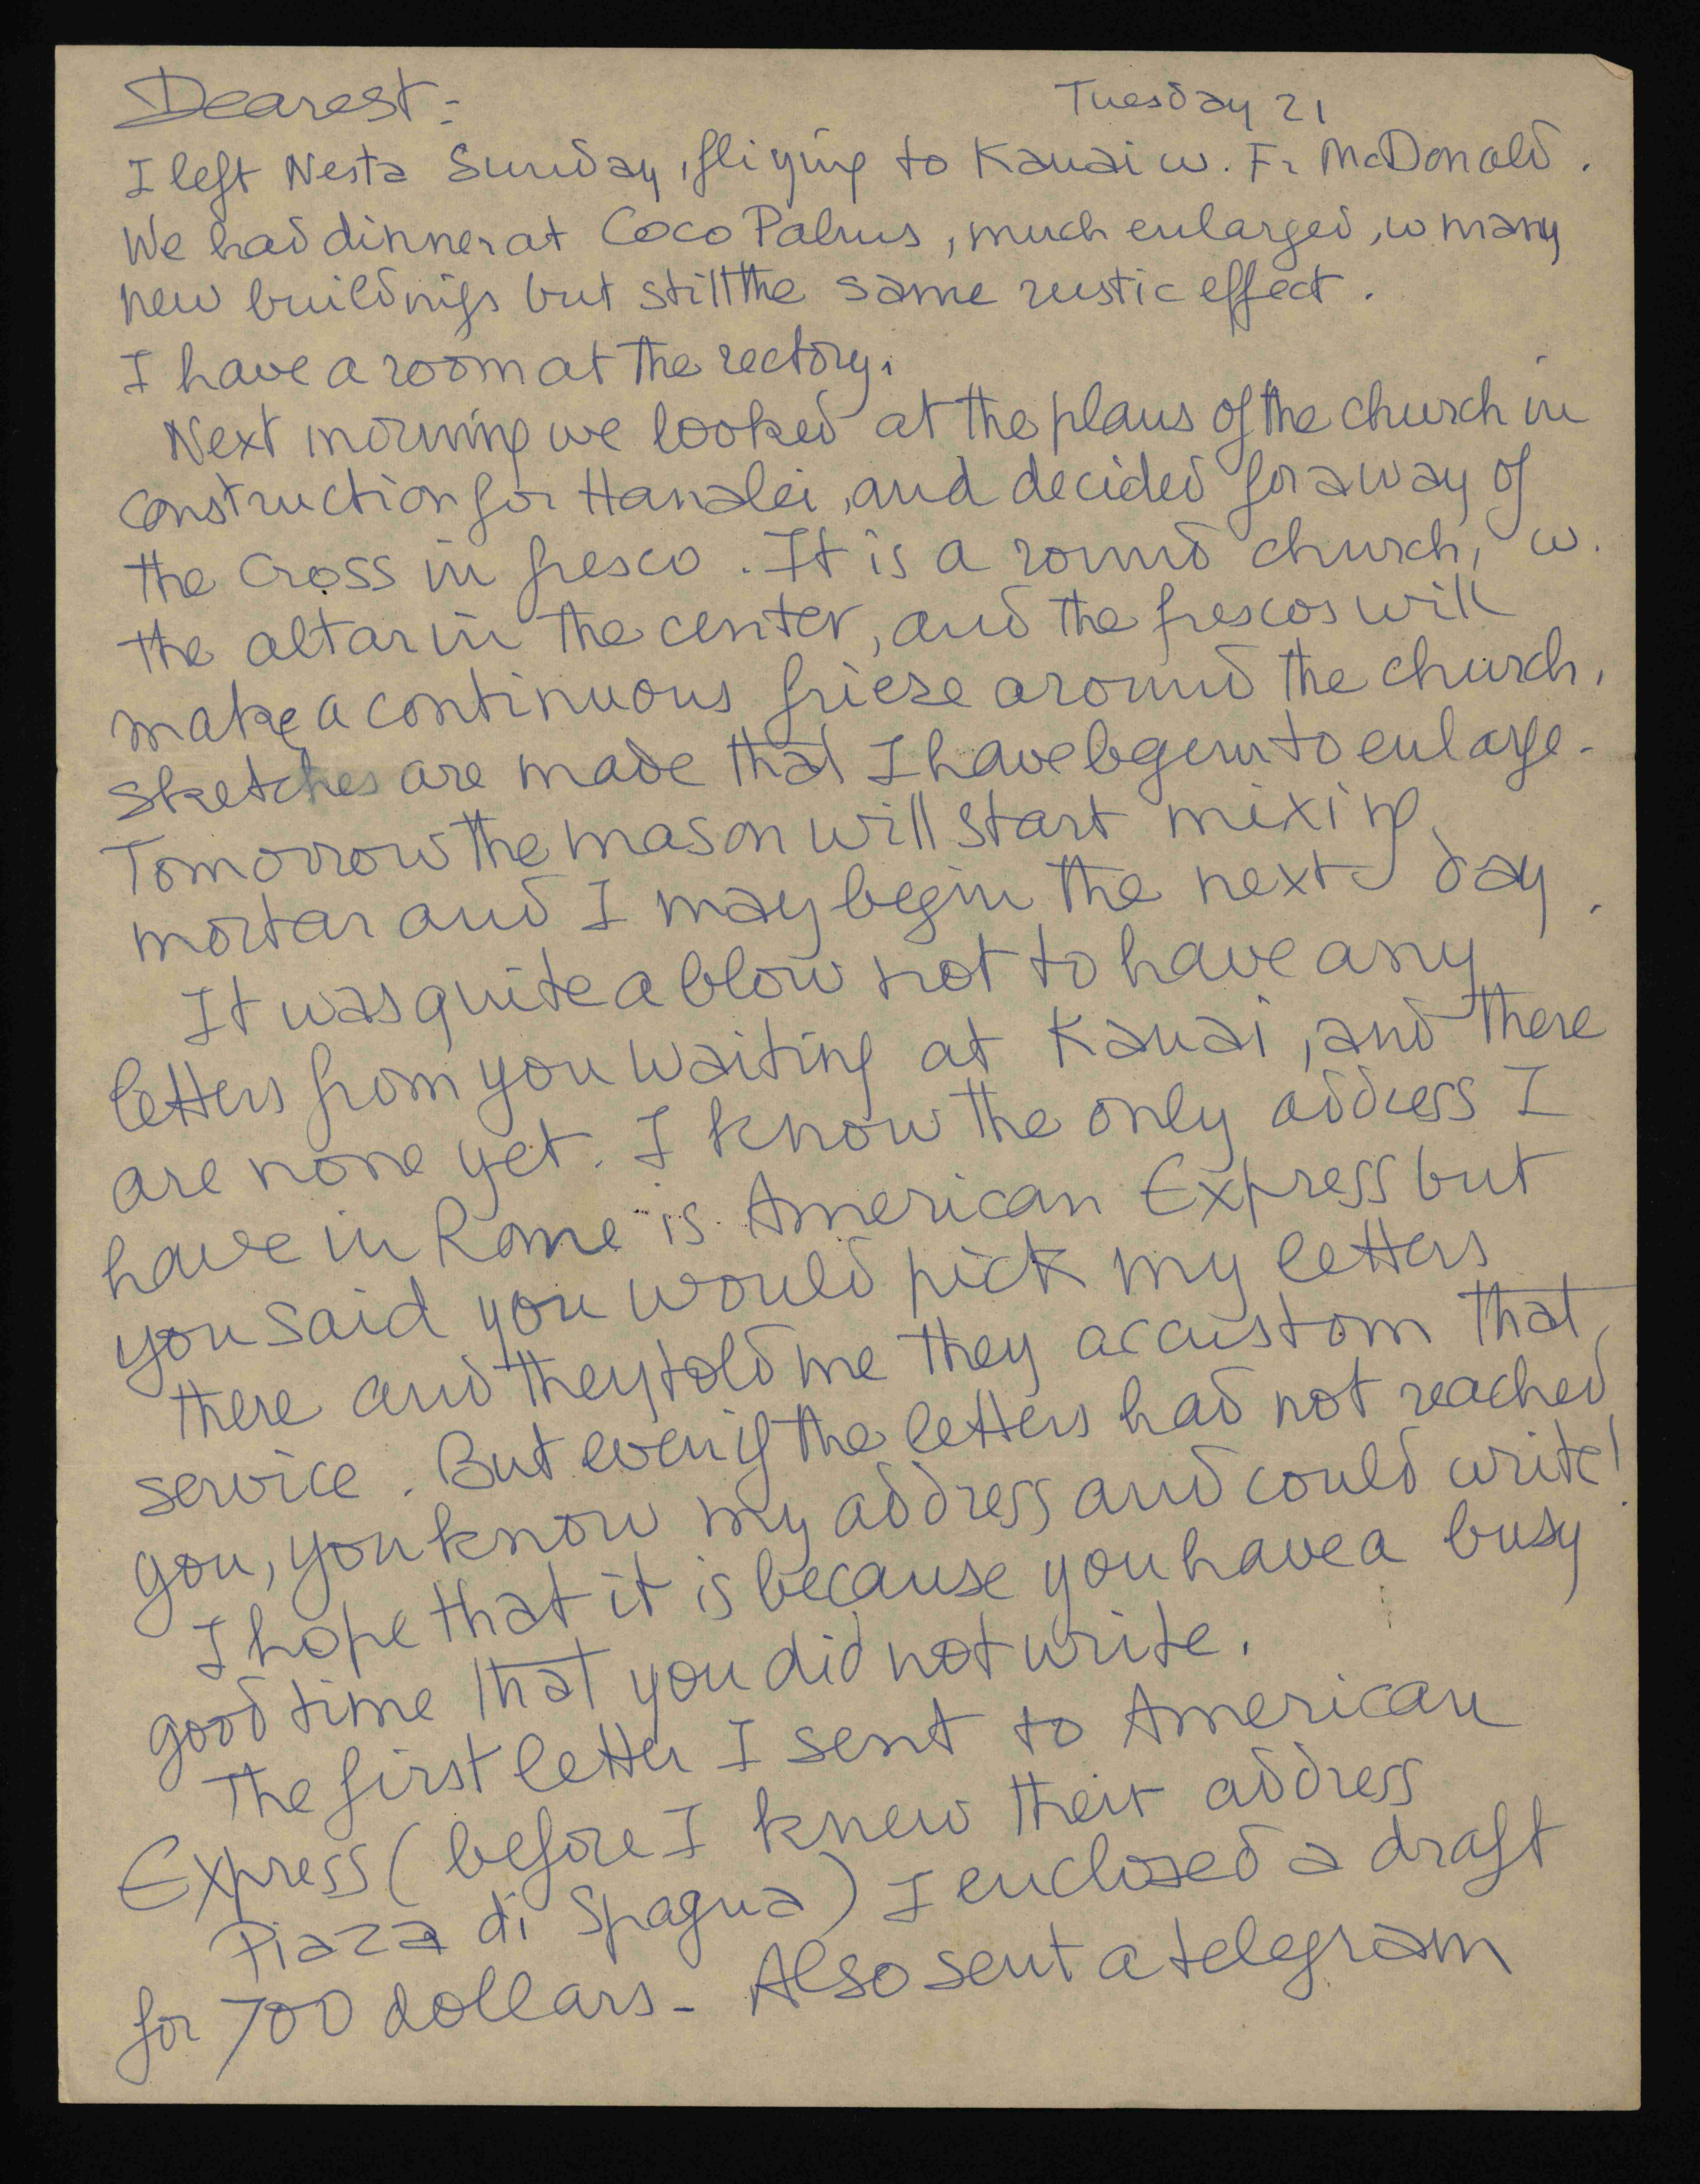 Dearest:
Tuesday 21
I left Nesta Sunday, fliying to Kauai w. Fr McDonald.
We had dinner at Coco Palms, much enlarged, w many
new buildnigs but still the same rustic effect.
I have a room at the rectory.
Next morning we looked at the plans of the church in
construction for Hanalei, and decided for a way of
the Cross in fresco. It is a round church, w.
the altar in the center, and the frescos will
make a continuous frieze around the church.
Sketches are made that I have begun to enlarge.
Tomorrow the mason will start mixing
mortar and I may begin the next day.
It was quite a blow not to have any
letters from you waiting at Kauai, and there
are none yet. I know the only address I
have in Rome is American Express but
you said you would pick my letters
there and they told me they accustom that
service. But even if the letters had not reached
you, you know my address and could write!
I hope that it is because you have a busy
good time that you did not write.
The first letter I sent to American
Express (before I knew their address
Piazza di Spagna) I enclosed a draft
for 700 dollars - Also sent a telegram